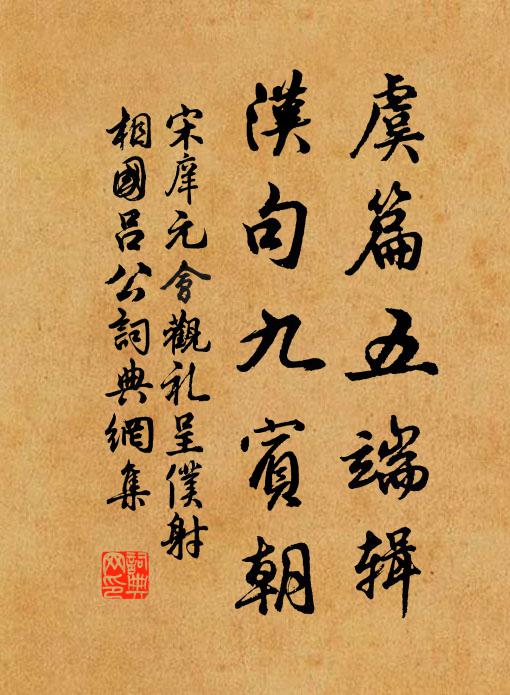 虞篇五端辑
漢句九賓朝
宋庠元會觀礼呈僕射
相國呂公詞典網集
詞典网印